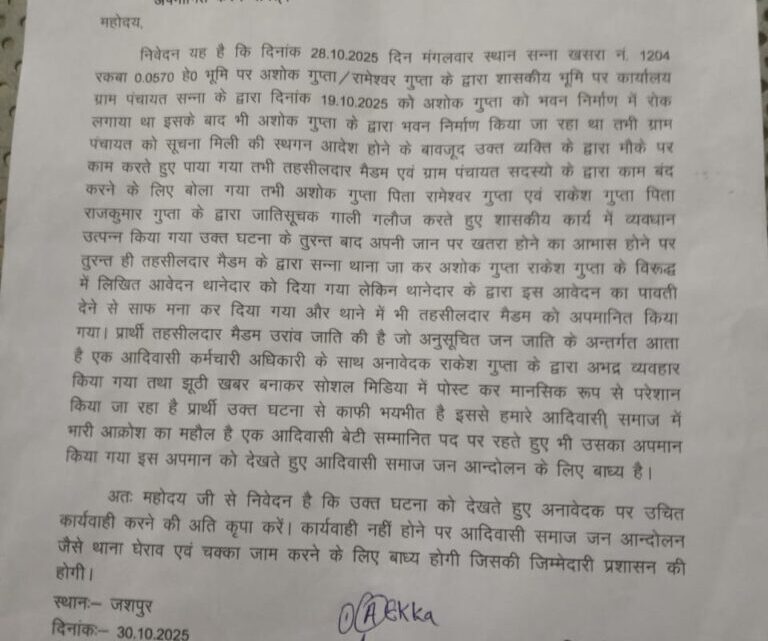 अपमानित करने बाबत्।
महोदय,
निवेदन यह है कि दिनांक 28.10.2025 दिन मंगलवार स्थान सन्ना खसरा नं. 1204
रकबा 0.0570 हे0 भूमि पर अशोक गुप्ता/रामेश्वर गुप्ता के द्वारा शासकीय भूमि पर कार्यालय
ग्राम पंचायत सन्ना के द्वारा दिनांक 19.10.2025 को अशोक गुप्ता को भवन निर्माण में रोक
लगाया था इसके बाद भी अशोक गुप्ता के द्वारा भवन निर्माण किया जा रहा था तभी ग्राम
पंचायत को सूचना मिली की स्थगन आदेश होने के बावजूद उक्त व्यक्ति के द्वारा मौके पर
काम करते हुए पाया गया तभी तहसीलदार मैडम एवं ग्राम पंचायत सदस्यो के द्वारा काम बंद
करने के लिए बोला गया तभी अशोक गुप्ता पिता रामेश्वर गुप्ता एवं राकेश गुप्ता पिता
राजकुमार गुप्ता के द्वारा जातिसूचक गाली गलौज करते हुए शासकीय कार्य में व्यवधान
उत्पन्न किया गया उक्त घटना के तुरन्त बाद अपनी जान पर खतरा होने का आभास होने पर
तुरन्त ही तहसीलदार मैडम के द्वारा सन्ना थाना जा कर अशोक गुप्ता राकेश गुप्ता के विरूद्ध
में लिखित आवेदन थानेदार को दिया गया लेकिन थानेदार के द्वारा इस आवेदन का पावती
देने से साफ मना कर दिया गया और थाने में भी तहसीलदार मैडम को अपमानित किया
गया। प्रार्थी तहसीलदार मैडम उरांव जाति की है जो अनुसूचित जन जाति के अन्तर्गत आता
है एक आदिवासी कर्मचारी अधिकारी के साथ अनावेदक राकेश गुप्ता के द्वारा अभद्र व्यवहार
किया गया तथा झूठी खबर बनाकर सोशल मिडिया में पोस्ट कर मानसिक रूप से परेशान
किया जा रहा है प्रार्थी उक्त घटना से काफी भयभीत है इससे हमारे आदिवासी समाज में
भारी आक्रोश का महौल है एक आदिवासी बेटी सम्मानित पद पर रहते हुए भी उसका अपमान
किया गया इस अपमान को देखते हुए आदिवासी समाज जन आन्दोलन के लिए बाध्य है।
अतः महोदय जी से निवेदन है कि उक्त घटना को देखते हुए अनावेदक पर उचित
कार्यवाही करने की अति कृपा करें। कार्यवाही नहीं होने पर आदिवासी समाज जन आन्दोलन
जैसे थाना घेराव एवं चक्का जाम करने के लिए बाध्य होगी जिसकी जिम्मेदारी प्रशासन की
होगी।
स्थानः– जशपुर
दिनांकः– 30.10.2025
① Ⓐ Ekka